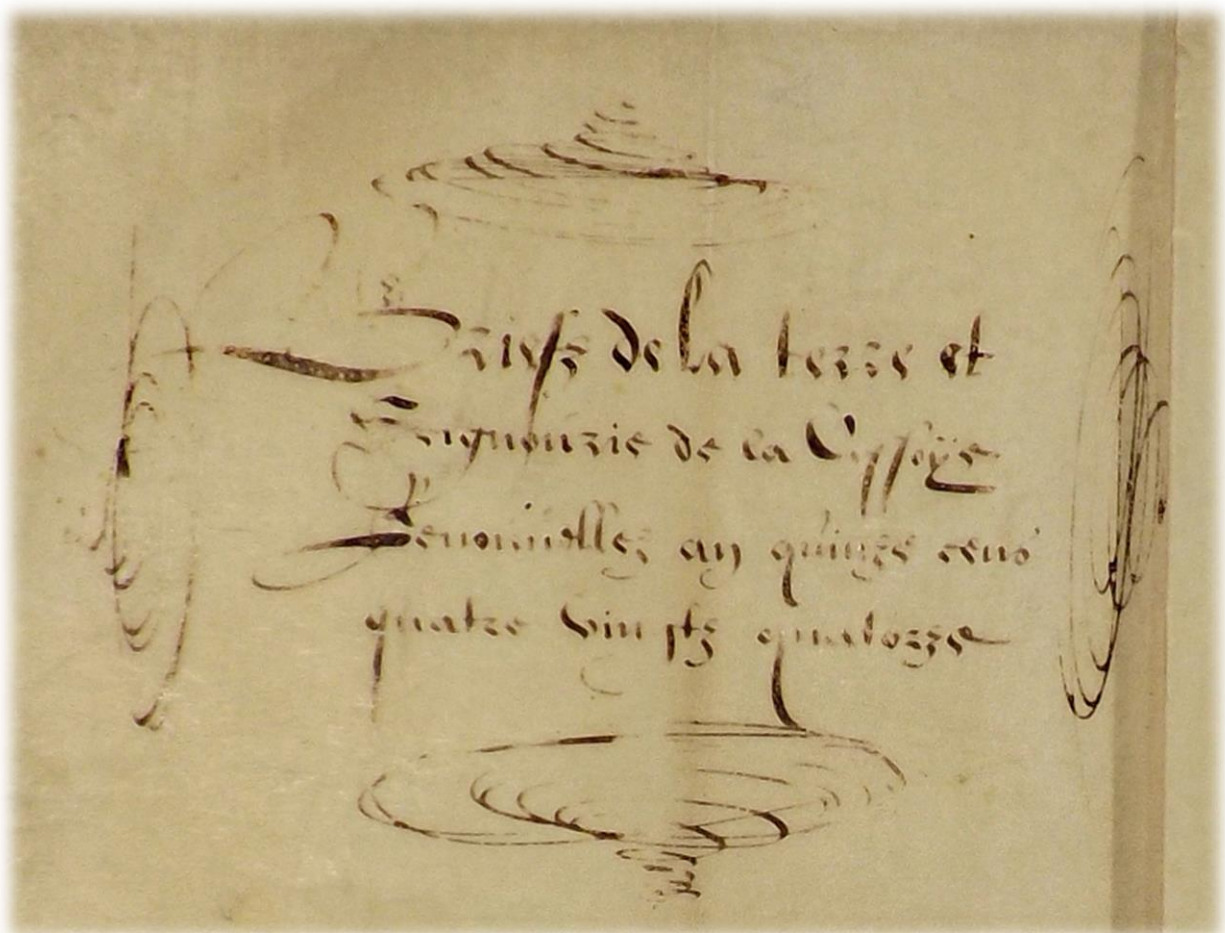 Briefz de la terre et
Seignourie de la Cessoye
Renouvellez an quinze cens
quatre vingtz quatorze